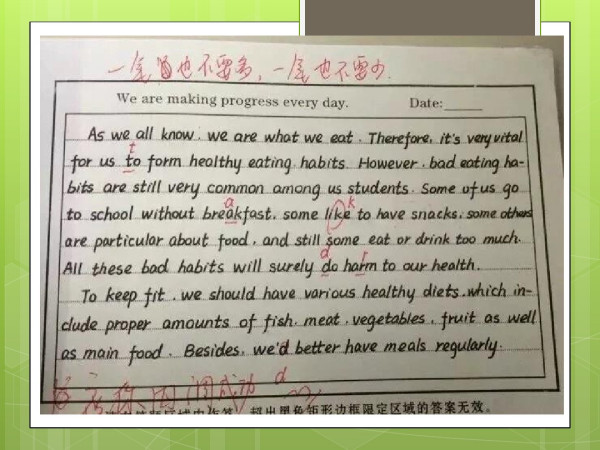 一笔也不要多,一笔也不要少.
We are making progress every day. Date:_____
As we all know, we are what we eat. Therefore, it's very vital
t
for us to form healthy eating habits. However, bad eating ha-
bits are still very common among us students. Some of us go
a k
to school without breakfast, some like to have snacks, some others
are particular about food, and still some eat or drink too much.
d r
All these bad habits will surely do harm to our health.
To keep fit, we should have various healthy diets, which in-
clude proper amounts of fish, meat, vegetables, fruit as well
as main food. Besides, we'd better have meals regularly.
d
区域内作答,超出黑色矩形边框限定区域的答案无效。